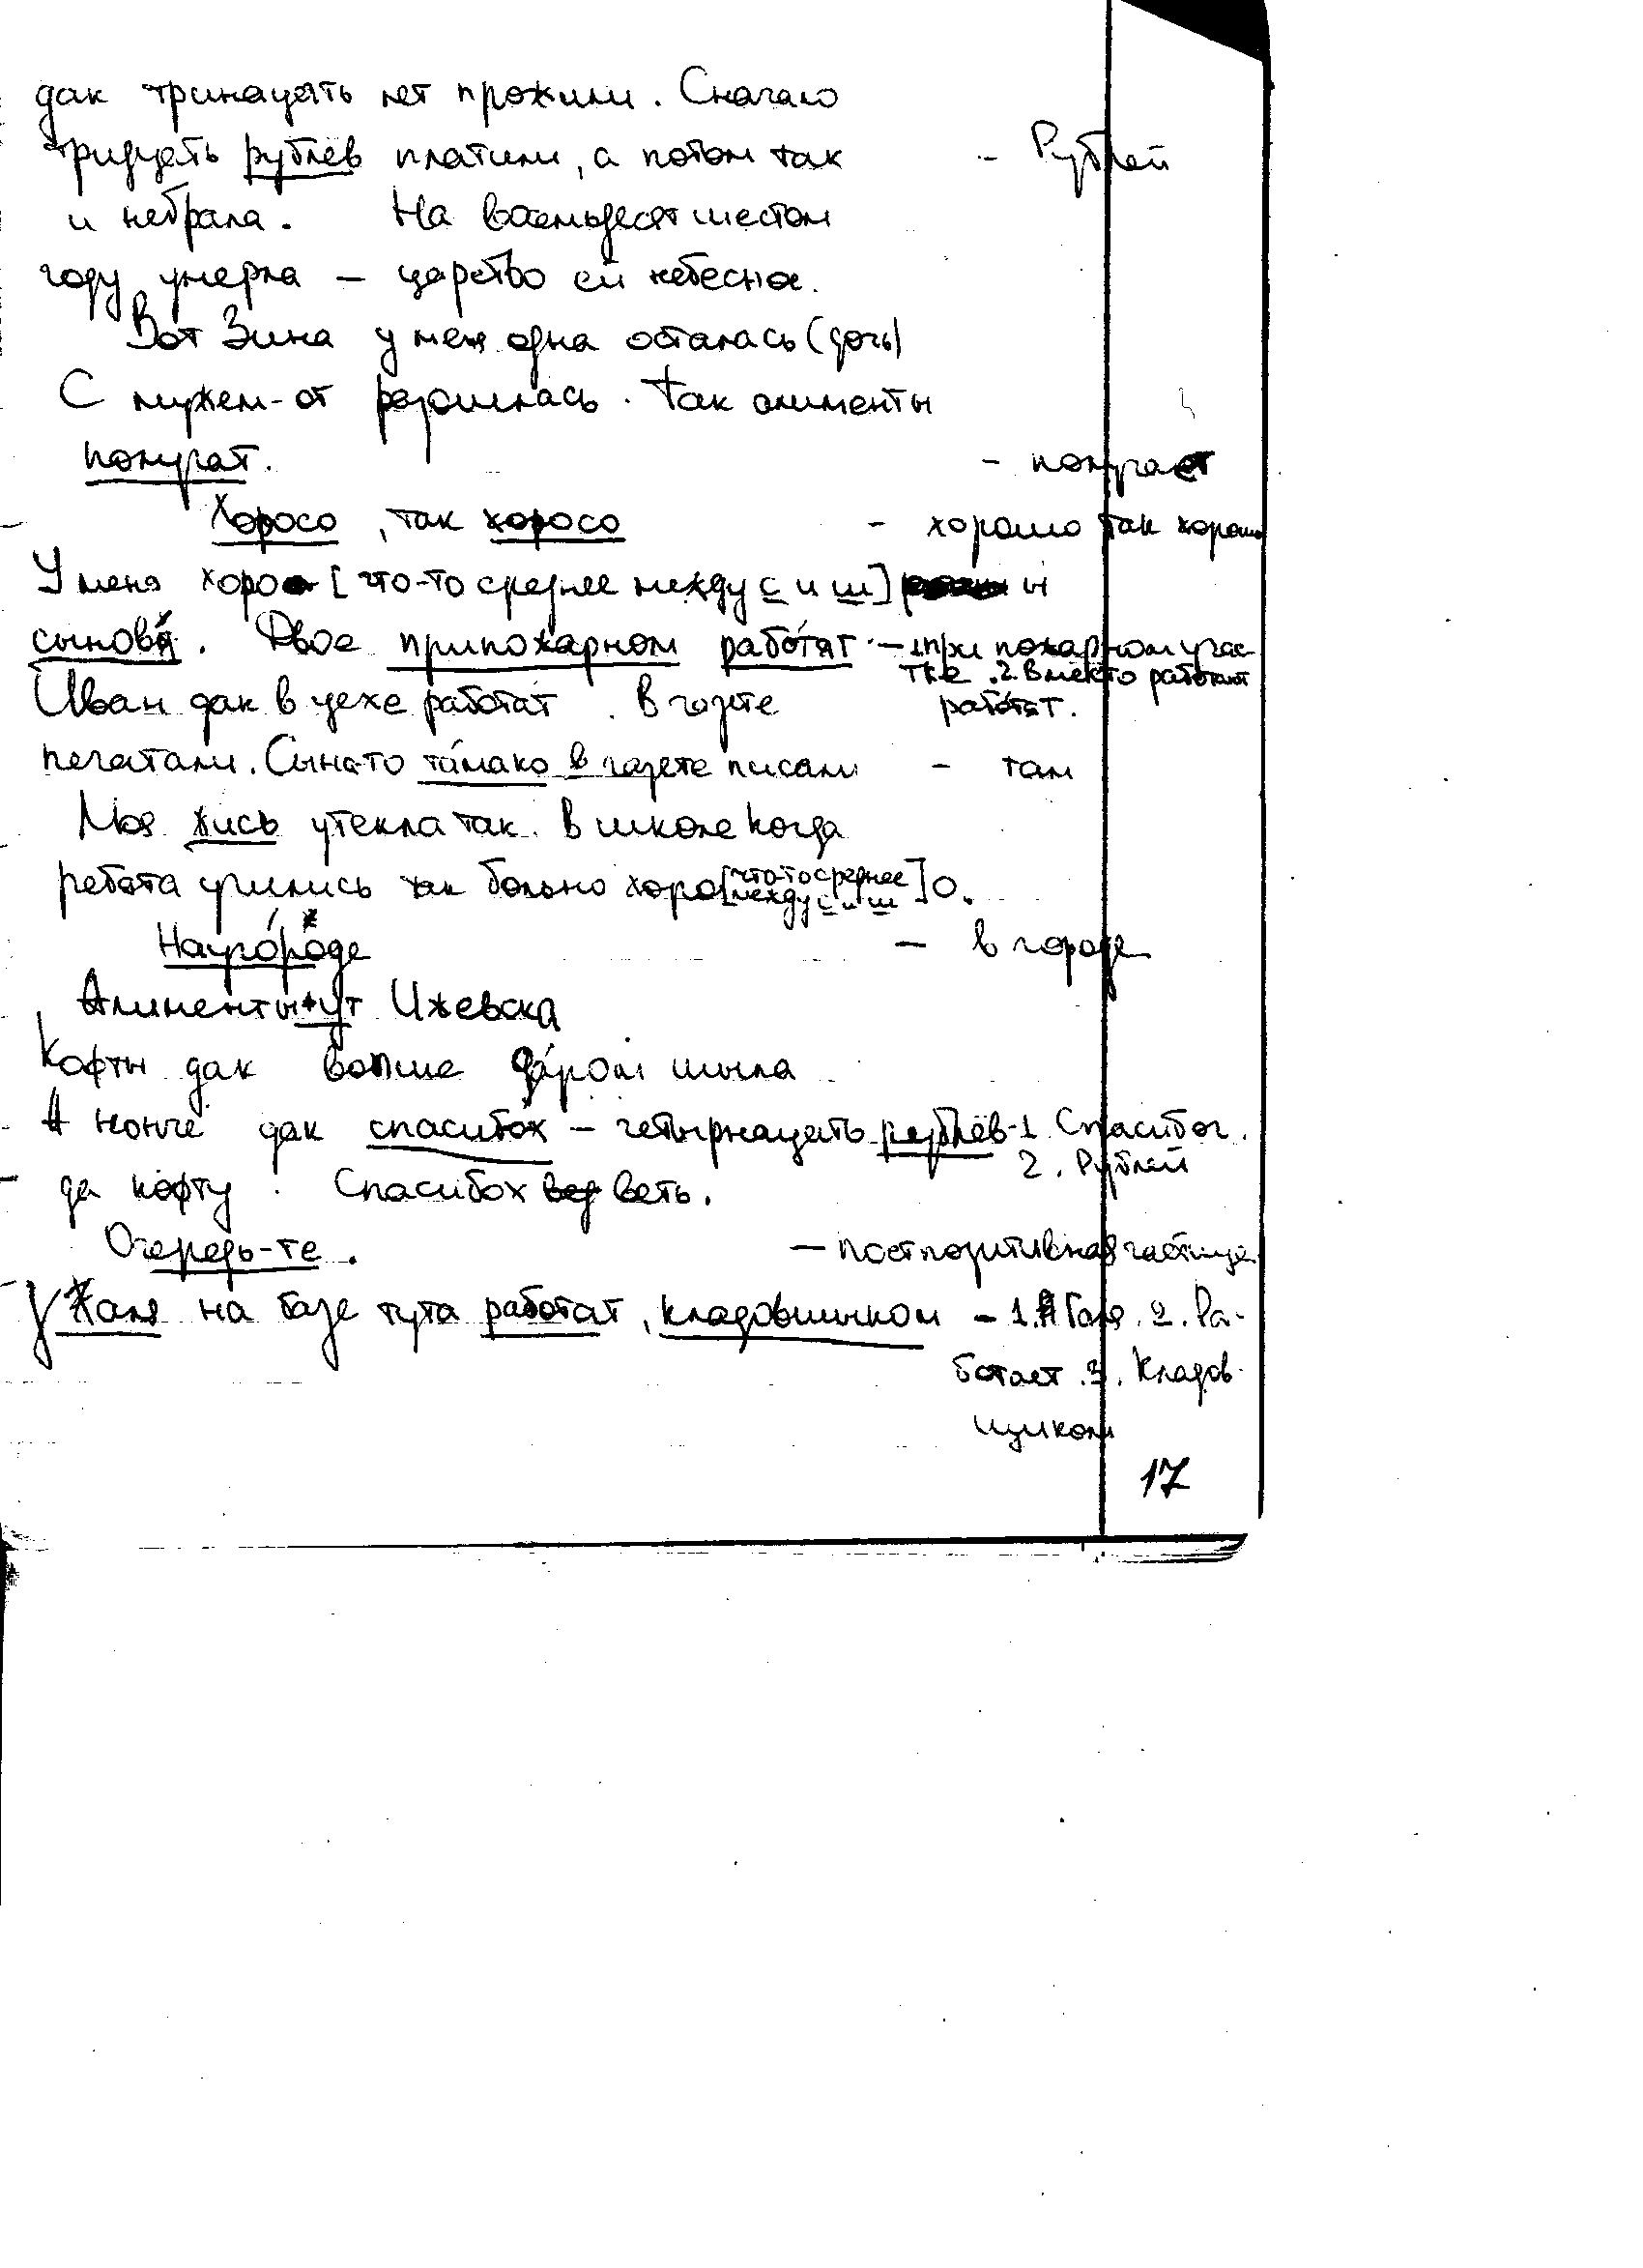 дак тринацять лет прожили. Сначало
тридцеть рублев платили, а потом так - Рублей
и небрала. На восемьдесят шестом
году умерла – царство ей небесное.
Вот Зина у меня одна осталась (дочь)
С мужем-от разошлась. Так алименты
полурат. - получает
Хоросо, так хоросо - хорошо так хорошо
У меня хоро [что-то среднее между с и ш] ы
сыновя́. Двое припожарном рабо́тят - 1 при пожарном учас
тке. 2. Вместо работают
Иван дак в цехе работат. В газете работят.
печатали. Сына-то та́мако в газете писали - там
Моя жись утекла так. В школе когда
ребята учились так больно хоро[что-то среднее между с и ш]о.
Науго́роде - в городе
Алименты ут Ижевска
Кофты дак вопше да́ром шыла
А нонче дак спасибо́х – четырнацеть рублёв - 1 Спасибог.
2. Рублей
да кофту. Спасибох веть.
Очередь-те. - постпозитивная частица
Ɣаля на базе тута работат, кладовшыком - 1. Галя. 2. Ра-
ботает. 3. Кладов-
щиком
17